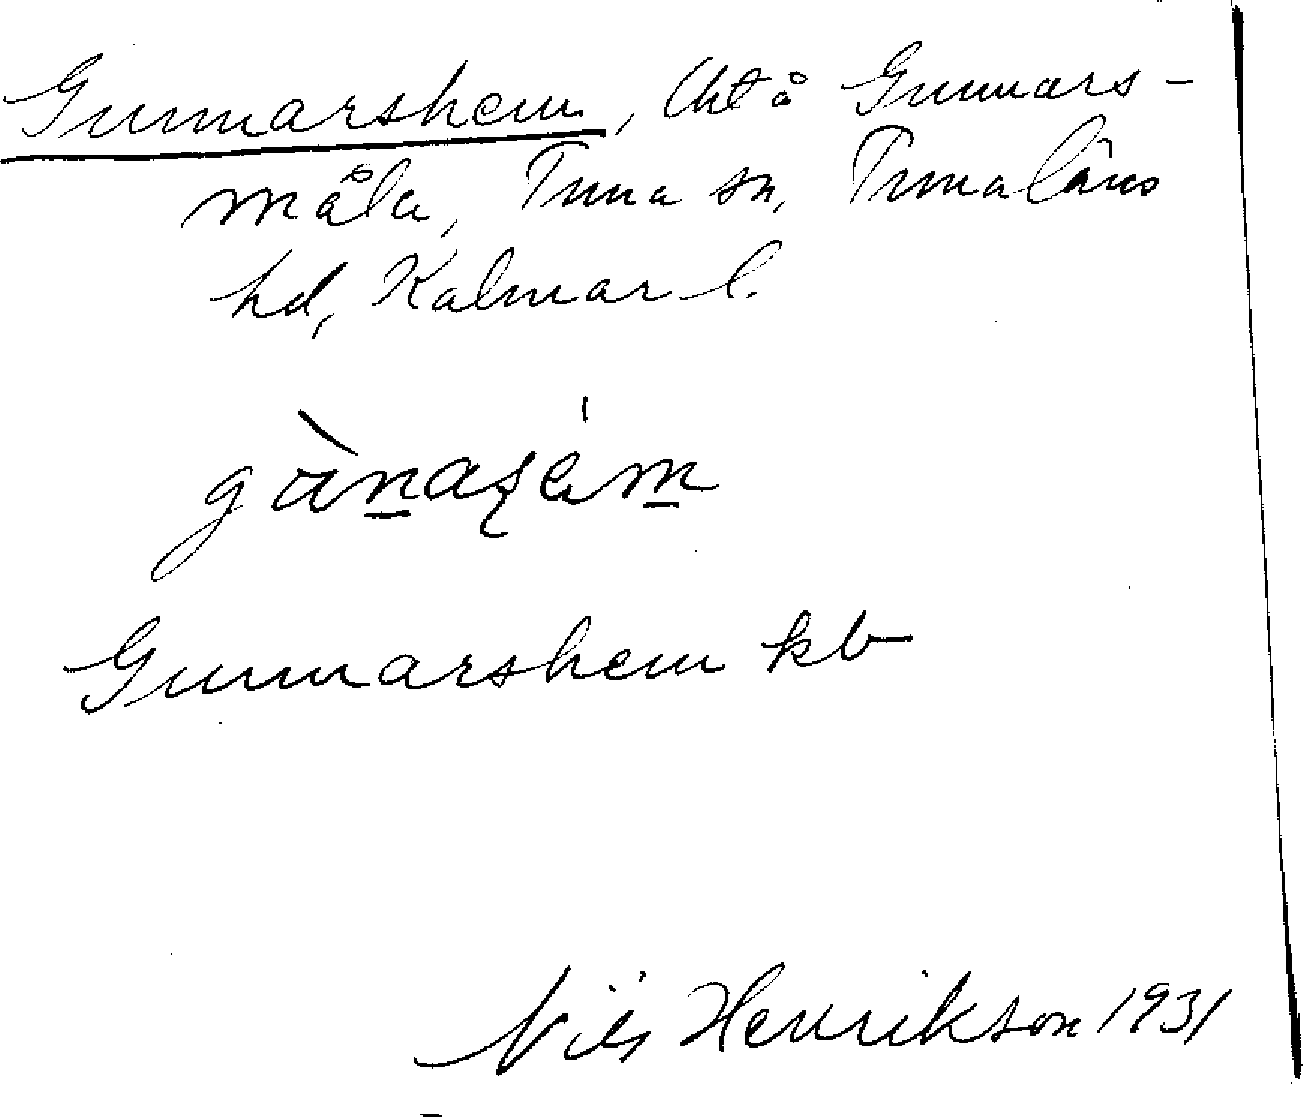 Gunnarshem, lht å Gunnars-
måla, Tuna sn, Tunaläns
hd, Kalmar l.
gànaʂém
Gunnarshem kb
Nils Henrikson 1931